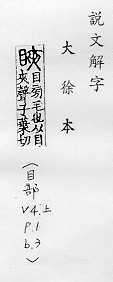 說文解字
大徐本
䀹
目旁毛也从目
夾聲子葉切
〈目部
V4.上
P.1
b.3〉